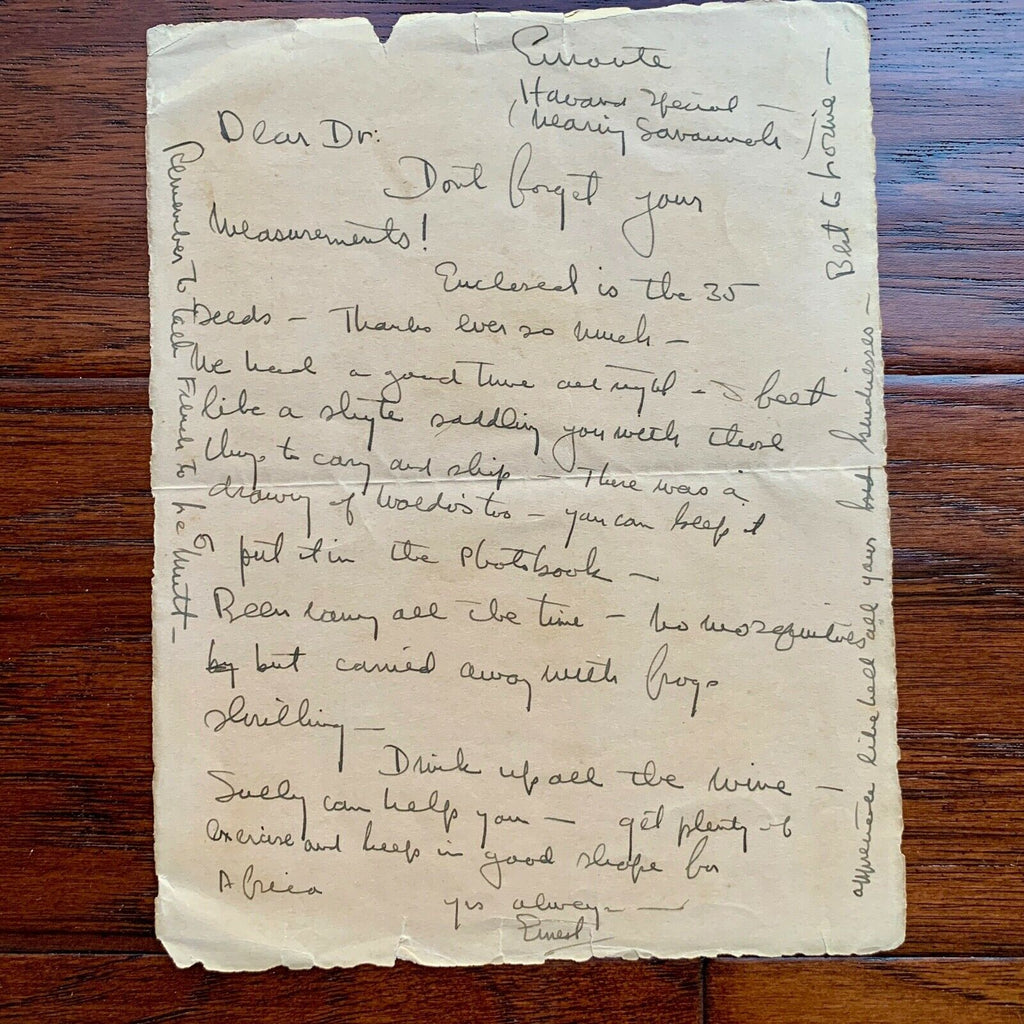 Enroute
Havana Special —
(nearing Savannah)
Dear Dr:
Dont forget your
measurements!
Enclosed is the 35
seeds — Thanks ever so much —
We had a good time all right — I feel
like a shyte saddling you with those
things to carry and ship — There was a
drawing of Waldo's too — you can keep it
& put it in the Photobook —
Been rainy all the time — No mosquitoes
by but carried away with frogs
shrilling —
Drink up all the wine —
Sully can help you — get plenty of
exercise and keep in good shape for
Africa
yrs always —
Ernest
Remember to talk French to he Mutt —
appreciate like hell all your and kindnesses —
Best to Lorine —